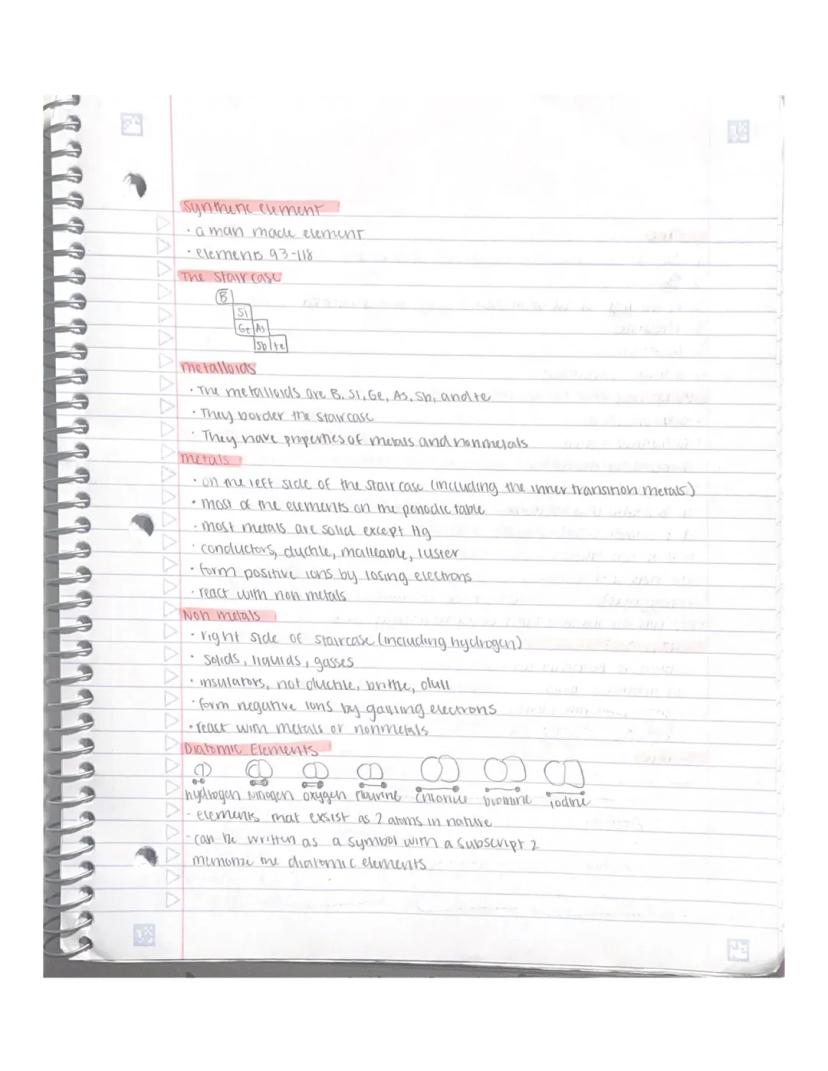 Synthetic element
· a man made element
· elements 93-118
The Stair case
B
Si
Ge As
Sb te
metalloids
· The metalloids are B, Si, Ge, As, Sb, and te
· They border the staircase
· They have properties of metals and nonmetals
metals
· on the left side of the stair case (including the inner transition metals)
· most of the elements on the periodic table
· most metals are solid except Hg
· conductors, ductile, malleable, luster
· form positive ions by losing electrons
· react with non metals
Non metals
· right side of staircase (including hydrogen)
· solids, liquids, gasses
· insulators, not ductile, brittle, dull
· form negative ions by gaining electrons
· react with metals or nonmetals
Diatomic Elements
hydrogen nitrogen oxygen flourine chlorine bromine iodine
- elements that exsist as 2 atoms in nature
- can be written as a symbol with a subscript 2
memorize the diatomic elements